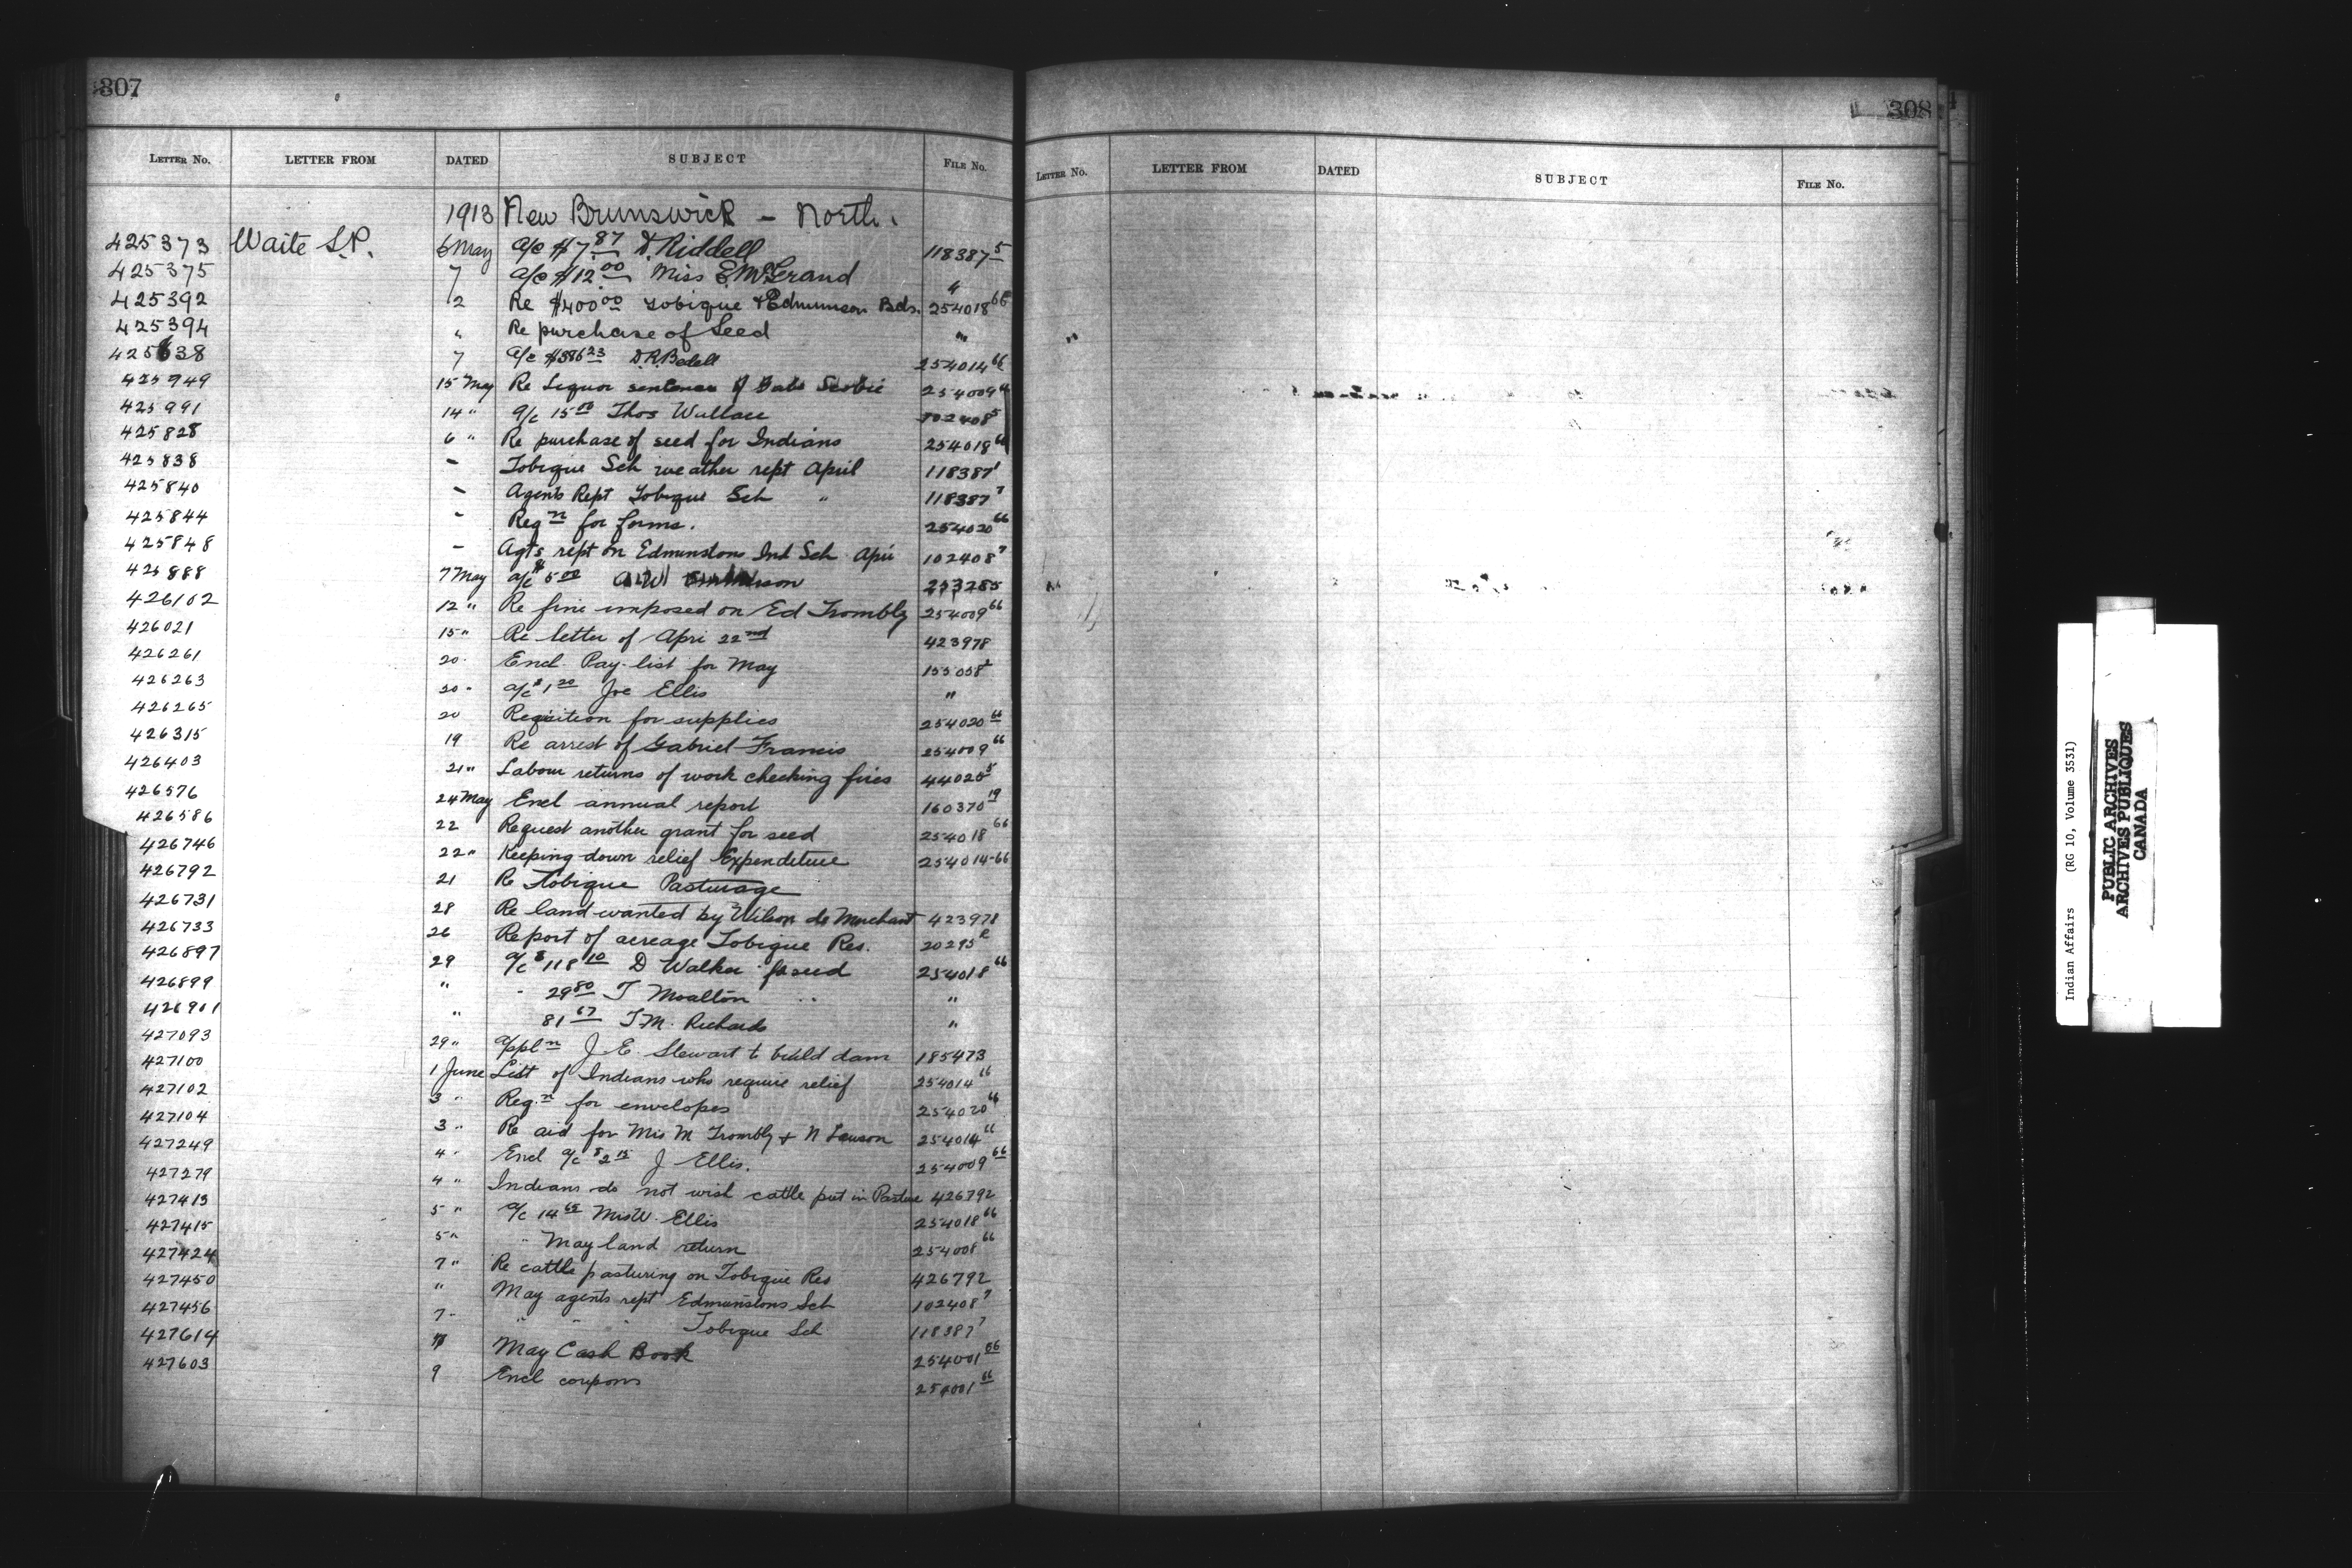 307
LETTER NO. LETTER FROM DATED SUBJECT FILE NO.
1913 New Brunswick - North.
425373 Waite S.P. 6 May a/c $7.87 D. Riddell 118387 5
425375 7 a/c $12.00 Miss E. McGrand "
425392 2 Re $400.00 Tobique & Edmunson Bds. 254018 66
425394 " Re purchase of Seed "
425638 7 a/c $386.23 D.R. Bedell 254014 66
425949 15 May Re Liquor sentence of 254009 66
425991 14 " a/c 15.00 Thos Wallace 102408 5
425828 6 " Re purchase of seed for Indians 254018 66
425838 - Tobique Sch weather rept April 118387 1
425840 - Agents Rept Tobique Sch " 118387 7
425844 - Reqn for forms. 254020 66
425848 - Agts rept on Edmunstons Ind Sch Apri 102408 7
425888 7 May a/c $5.00 253285
426102 12 " Re fine imposed on Ed Trombly 254009 66
426021 15 " Re letter of Apri 22nd 423978
426261 20 - Encl. Pay-list for May 155058 2
426263 20 - a/c $1.20 Joe Ellis "
426265 20 Requsition for supplies 254020 66
426315 19 Re arrest of Gabriel Francis 254009 66
426403 21 " Labour returns of work checking fires 44025 5
426576 24 May Encl annual report 160370 19
426586 22 Request another grant for seed 254018 66
426746 22 " Keeping down relief Expenditure 254014-66
426792 21 Re Tobique Pasturage
426731 28 Re land wanted by Wilson de Merchant 423978
426733 26 Report of acreage Tobique Res. 20295 R
426897 29 a/c $118.10 D Walker for seed 254018 66
426899 " - 29.80 T Moalton " "
426901 " 81.67 T.M. Richards "
427093 29 " appln J E Stewart to build dam 185473
427100 1 June List of Indians who require relief 254014 66
427102 3 " Reqn for envelopes 254020 66
427104 3 " Re aid for Mis M Trombly & N Lawson 254014 66
427249 4 - Encl a/c $2.15 J Ellis. 254009 66
427279 4 " Indians do not wish cattle put in Pasture 426792
427413 5 " a/c 14.65 Mis W. Ellis 254018 66
427415 5 " " May land return 254008 66
427424 7 " Re cattle pasturing on Tobique Res 426792
427450 " May agents rept Edmunstons Sch 102408 7
427456 7 - " " " Tobique Sch 118387 7
427614 7 May Cash Book 254001 66
427603 9 Encl coupons 254001 66
308
LETTER NO. LETTER FROM DATED SUBJECT FILE NO.
Indian Affairs (RG 10, Volume 3531)
PUBLIC ARCHIVES
ARCHIVES PUBLIQUES
CANADA